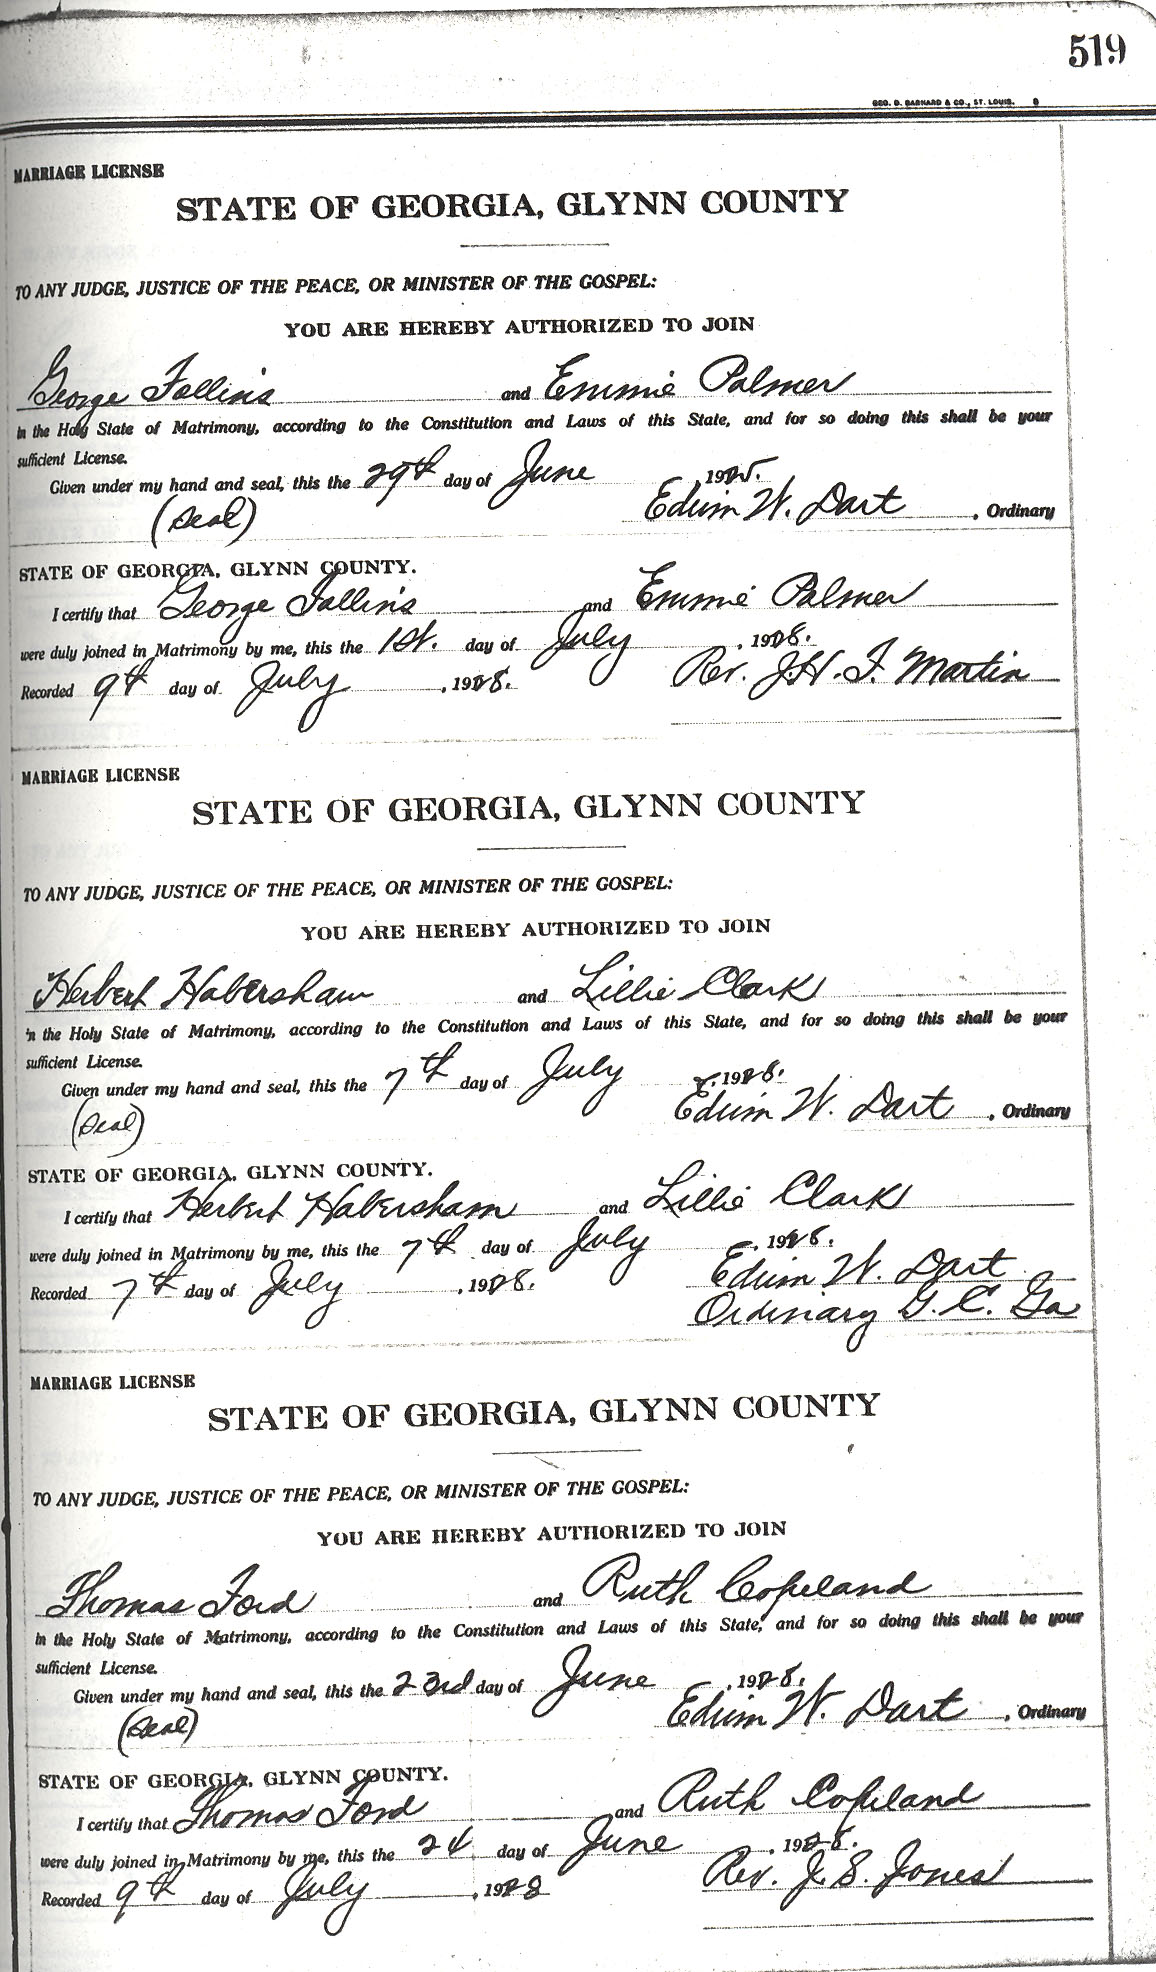 519
GEO. D. BARNARD & CO., ST. LOUIS. 8
MARRIAGE LICENSE
STATE OF GEORGIA, GLYNN COUNTY
TO ANY JUDGE, JUSTICE OF THE PEACE, OR MINISTER OF THE GOSPEL:
YOU ARE HEREBY AUTHORIZED TO JOIN
George Follins and Emmie Palmer
in the Holy State of Matrimony, according to the Constitution and Laws of this State, and for so doing this shall be your
sufficient License.
Given under my hand and seal, this the 29th day of June
(Seal) Edwin W. Dart , Ordinary
STATE OF GEORGIA, GLYNN COUNTY.
I certify that George Follins and Emmie Palmer
were duly joined in Matrimony by me, this the 1st. day of July , 1928.
Recorded 9th day of July , 1928. Rev. J.H. F. Martin
MARRIAGE LICENSE
STATE OF GEORGIA, GLYNN COUNTY
TO ANY JUDGE, JUSTICE OF THE PEACE, OR MINISTER OF THE GOSPEL:
YOU ARE HEREBY AUTHORIZED TO JOIN
Herbert Habersham and Lillie Clark
in the Holy State of Matrimony, according to the Constitution and Laws of this State, and for so doing this shall be your
sufficient License.
Given under my hand and seal, this the 7th day of July , 1928.
(Seal) Edwin W. Dart , Ordinary
STATE OF GEORGIA, GLYNN COUNTY.
I certify that Herbert Habersham and Lillie Clark
were duly joined in Matrimony by me, this the 7th day of July , 1928.
Recorded 7th day of July , 1928. Edwin W. Dart
Ordinary G. C. Ga
MARRIAGE LICENSE
STATE OF GEORGIA, GLYNN COUNTY
TO ANY JUDGE, JUSTICE OF THE PEACE, OR MINISTER OF THE GOSPEL:
YOU ARE HEREBY AUTHORIZED TO JOIN
Thomas Ford and Ruth Copeland
in the Holy State of Matrimony, according to the Constitution and Laws of this State, and for so doing this shall be your
sufficient License.
Given under my hand and seal, this the 23rd day of June , 1928.
(Seal) Edwin W. Dart , Ordinary
STATE OF GEORGIA, GLYNN COUNTY.
I certify that Thomas Ford and Ruth Copeland
were duly joined in Matrimony by me, this the 24 day of June , 1928.
Recorded 9th day of July , 1928 Rev. J. S. Jones